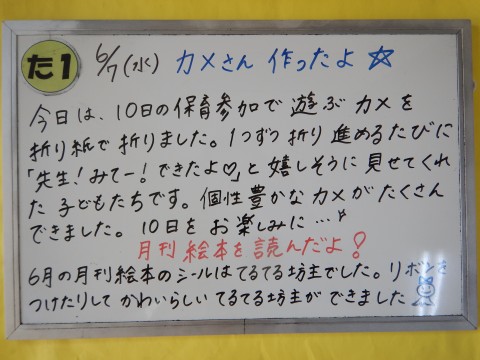 た1 6/7(水) カメさん 作ったよ☆
今日は、10日の保育参加で遊ぶカメを
折り紙で折りました。1つずつ折り進めるたびに
「先生!みてー!できたよ♡」と嬉しそうに見せてくれ
た子どもたちです。個性豊かなカメがたくさん
できました。10日をお楽しみに…♪
月刊絵本を読んだよ!
6月の月刊絵本のシールはてるてる坊主でした。リボンを
つけたりしてかわいらしいてるてる坊主ができました